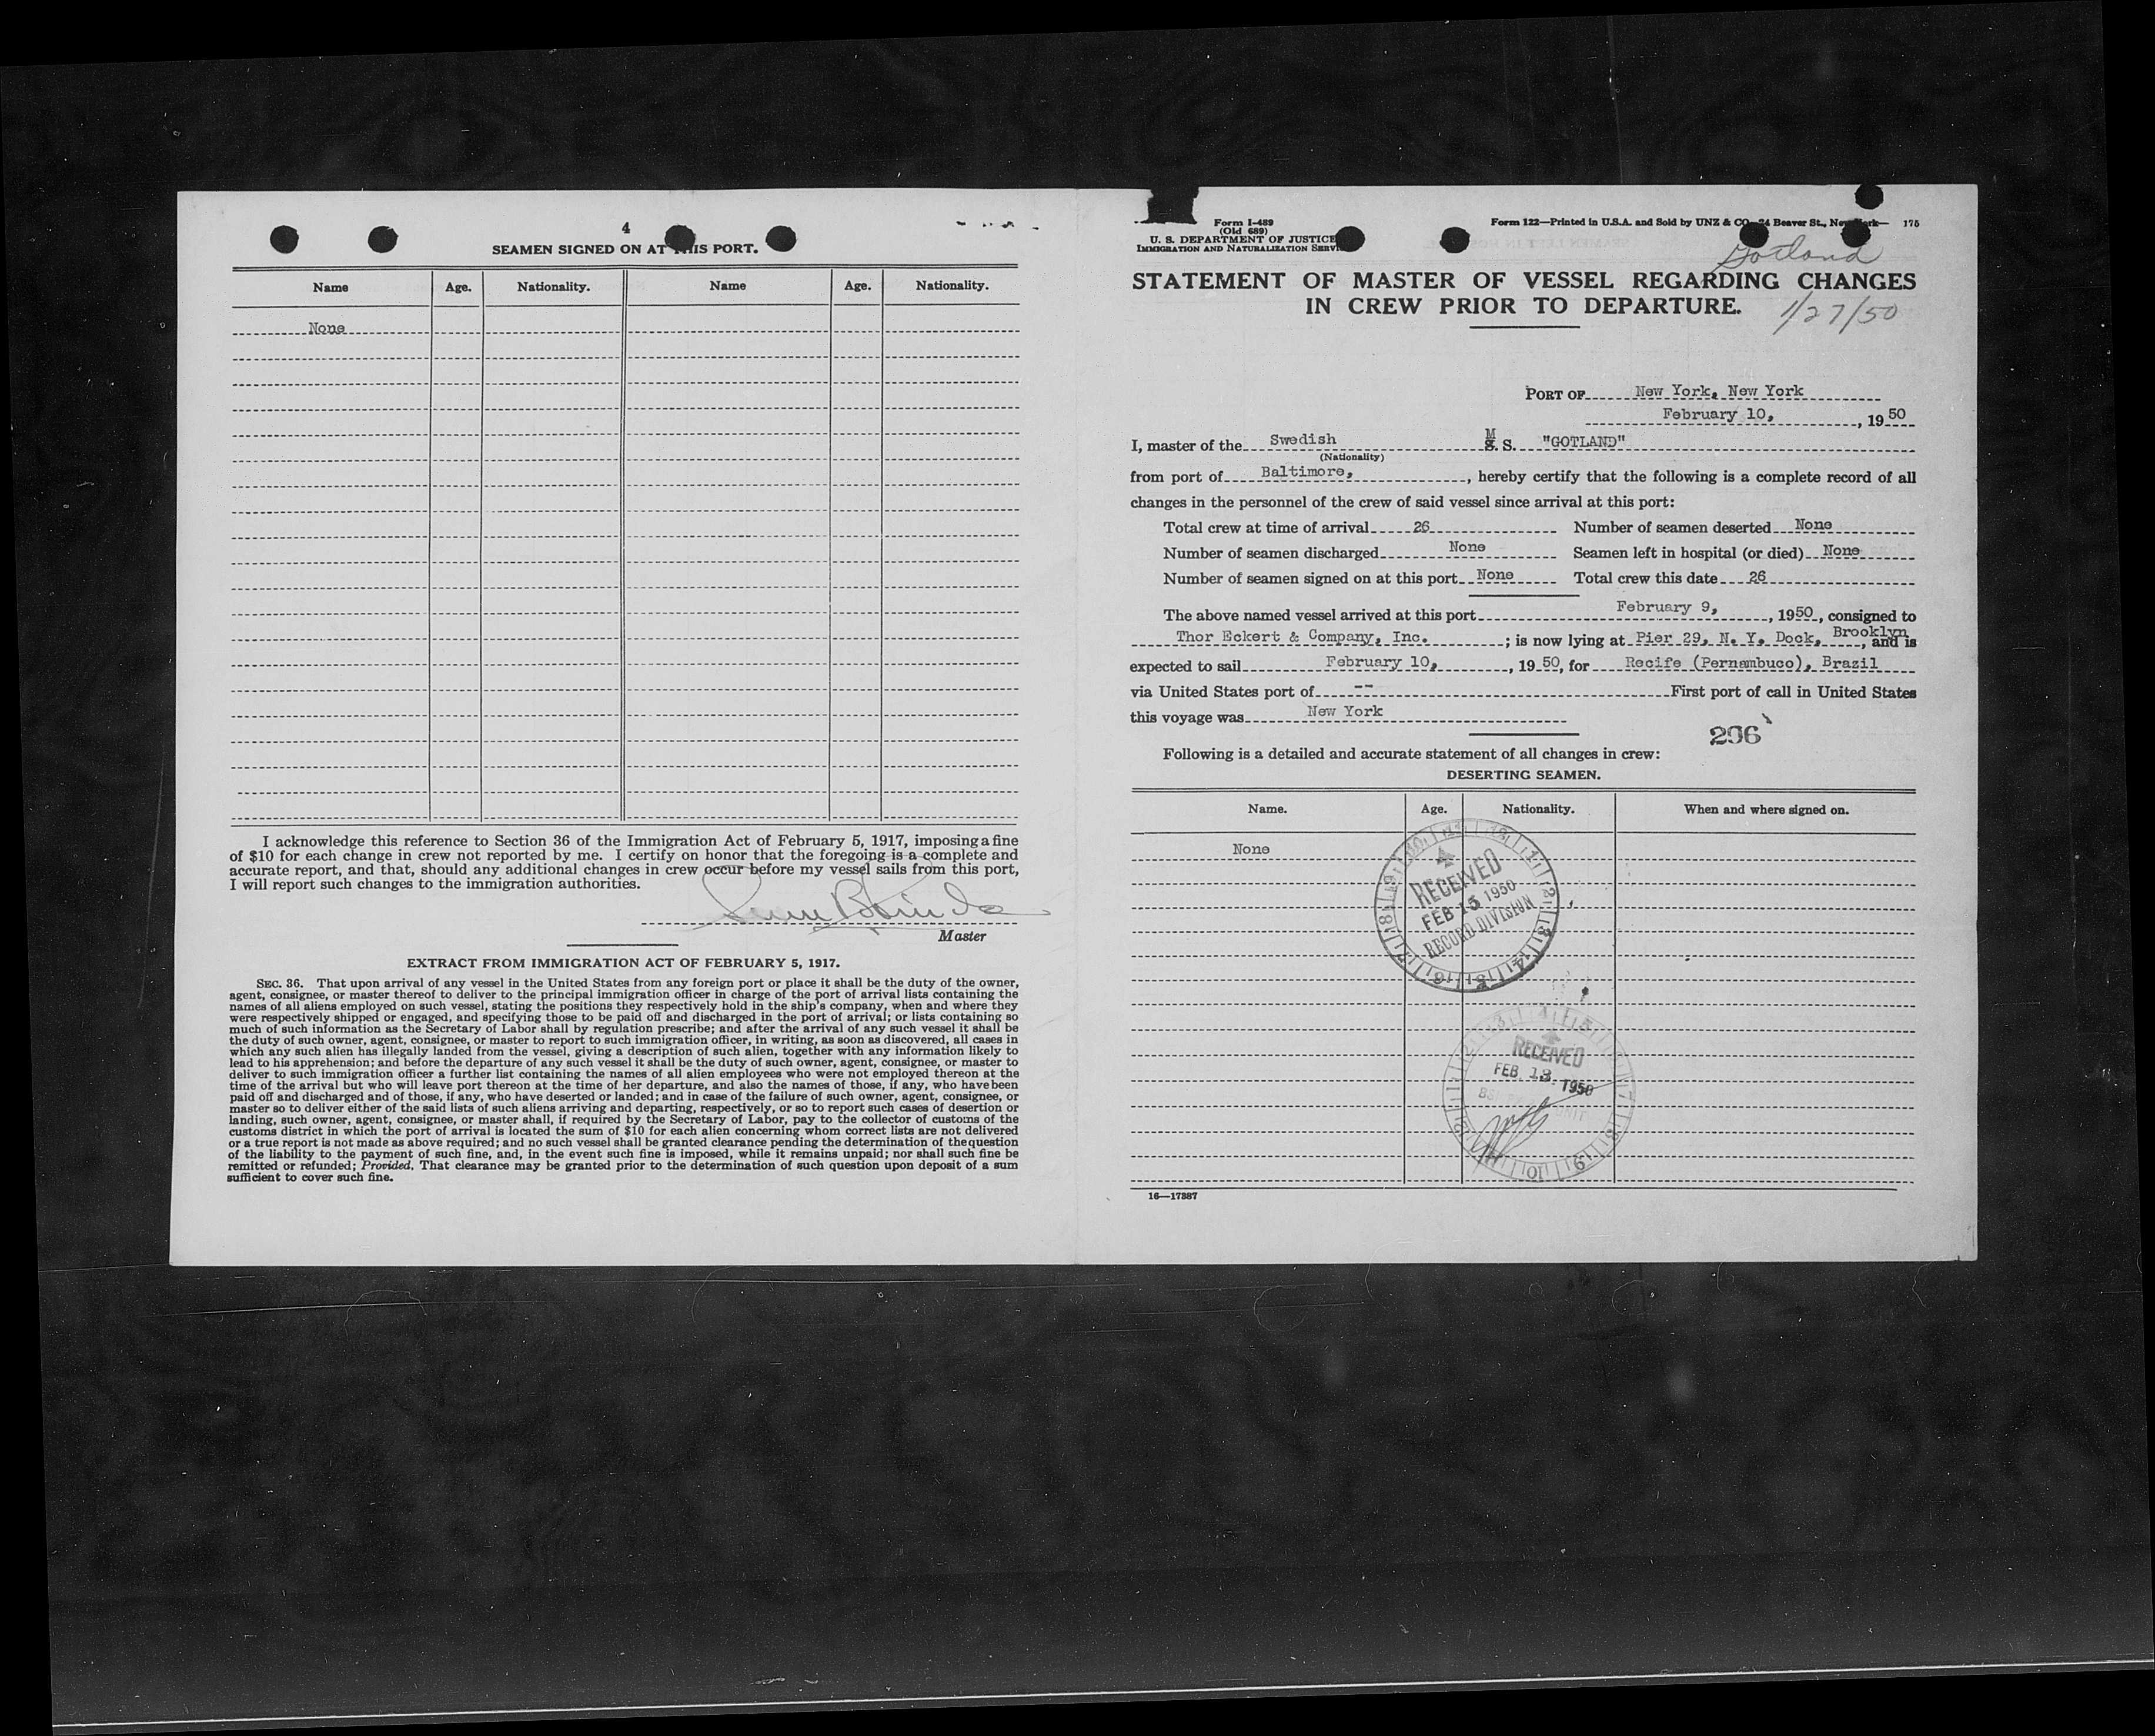 4
SEAMEN SIGNED ON AT THIS PORT.
Name Age. Nationality. Name Age. Nationality.
None
I acknowledge this reference to Section 36 of the Immigration Act of February 5, 1917, imposing a fine
of $10 for each change in crew not reported by me. I certify on honor that the foregoing is a complete and
accurate report, and that, should any additional changes in crew occur before my vessel sails from this port,
I will report such changes to the immigration authorities.
Master
EXTRACT FROM IMMIGRATION ACT OF FEBRUARY 5, 1917.
SEC. 36. That upon arrival of any vessel in the United States from any foreign port or place it shall be the duty of the owner,
agent, consignee, or master thereof to deliver to the principal immigration officer in charge of the port of arrival lists containing the
names of all aliens employed on such vessel, stating the positions they respectively hold in the ship's company, when and where they
were respectively shipped or engaged, and specifying those to be paid off and discharged in the port of arrival; or lists containing so
much of such information as the Secretary of Labor shall by regulation prescribe; and after the arrival of any such vessel it shall be
the duty of such owner, agent, consignee, or master to report to such immigration officer, in writing, as soon as discovered, all cases in
which any such alien has illegally landed from the vessel, giving a description of such alien, together with any information likely to
lead to his apprehension; and before the departure of any such vessel it shall be the duty of such owner, agent, consignee, or master to
deliver to such immigration officer a further list containing the names of all alien employees who were not employed thereon at the
time of the arrival but who will leave port thereon at the time of her departure, and also the names of those, if any, who have been
paid off and discharged and of those, if any, who have deserted or landed; and in case of the failure of such owner, agent, consignee, or
master so to deliver either of the said lists of such aliens arriving and departing, respectively, or so to report such cases of desertion or
landing, such owner, agent, consignee, or master shall, if required by the Secretary of Labor, pay to the collector of customs of the
customs district in which the port of arrival is located the sum of $10 for each alien concerning whom correct lists are not delivered
or a true report is not made as above required; and no such vessel shall be granted clearance pending the determination of the question
of the liability to the payment of such fine, and, in the event such fine is imposed, while it remains unpaid; nor shall such fine be
remitted or refunded; Provided, That clearance may be granted prior to the determination of such question upon deposit of a sum
sufficient to cover such fine.
Form I-489
(Old 689)
U. S. DEPARTMENT OF JUSTICE
IMMIGRATION AND NATURALIZATION SERVI
Form 122—Printed in U.S.A. and Sold by UNZ & CO. 24 Beaver St., New York— 175
Gotland
STATEMENT OF MASTER OF VESSEL REGARDING CHANGES
IN CREW PRIOR TO DEPARTURE.
1/27/50
PORT OF New York, New York
February 10, , 19 50
I, master of the Swedish M S. S. "GOTLAND"
(Nationality)
from port of Baltimore, , hereby certify that the following is a complete record of all
changes in the personnel of the crew of said vessel since arrival at this port:
Total crew at time of arrival 26 Number of seamen deserted None
Number of seamen discharged None Seamen left in hospital (or died) None
Number of seamen signed on at this port None Total crew this date 26
The above named vessel arrived at this port February 9, , 1950, consigned to
Thor Eckert & Company, Inc. ; is now lying at Pier 29, N. Y. Dock, Brooklyn, and is
expected to sail February 10, , 19 50, for Recife (Pernambuco), Brazil
via United States port of -- First port of call in United States
this voyage was New York
296
Following is a detailed and accurate statement of all changes in crew:
DESERTING SEAMEN.
Name. Age. Nationality. When and where signed on.
None
RECEIVED
FEB 13 1950
RECORD DIVISION
RECEIVED
FEB. 13. 1950
16—17387